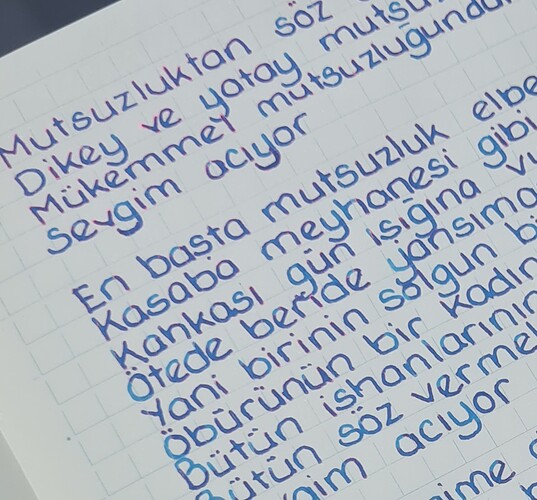 Mutsuzluktan söz
Dikey ve yatay mutsu
Mükemmel mutsuzluğundan
Sevgim acıyor
En başta mutsuzluk elbe
Kasaba meyhanesi gibi
Kahkası gün ışığına vu
Ötede beride yansıma
Yani birinin solgun bi
Öbürünün bir kadın
Bütün işhanlarının
Bütün söz verme
gim acıyor
ime